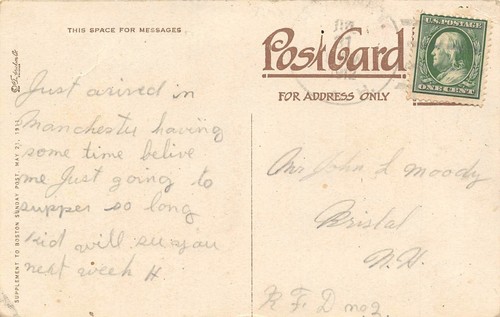 THIS SPACE FOR MESSAGES
Just arived in
Manchester having
some time belive
me Just going to
supper so long
kid will see you
next week H.
SUPPLEMENT TO BOSTON SUNDAY POST, MAY 21, 1911
Post Card
FOR ADDRESS ONLY
U.S. POSTAGE
ONE CENT
Mr John L Moody
Bristol
N.H.
R F D no 2